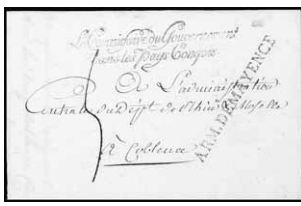 Le Commissaire du Gouvernement
dans les Pays Conquis
A L'administration
Centrale du Dépt de Rhin et Moselle
à Coblence
ARM. DE MAYENCE